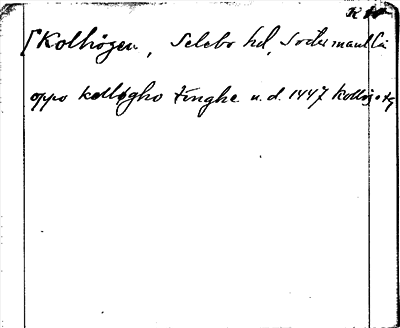 [Kolhögen, Selebo hd, Södermanl. län
oppo kollögho tinghe u.d. 1447 Kollög